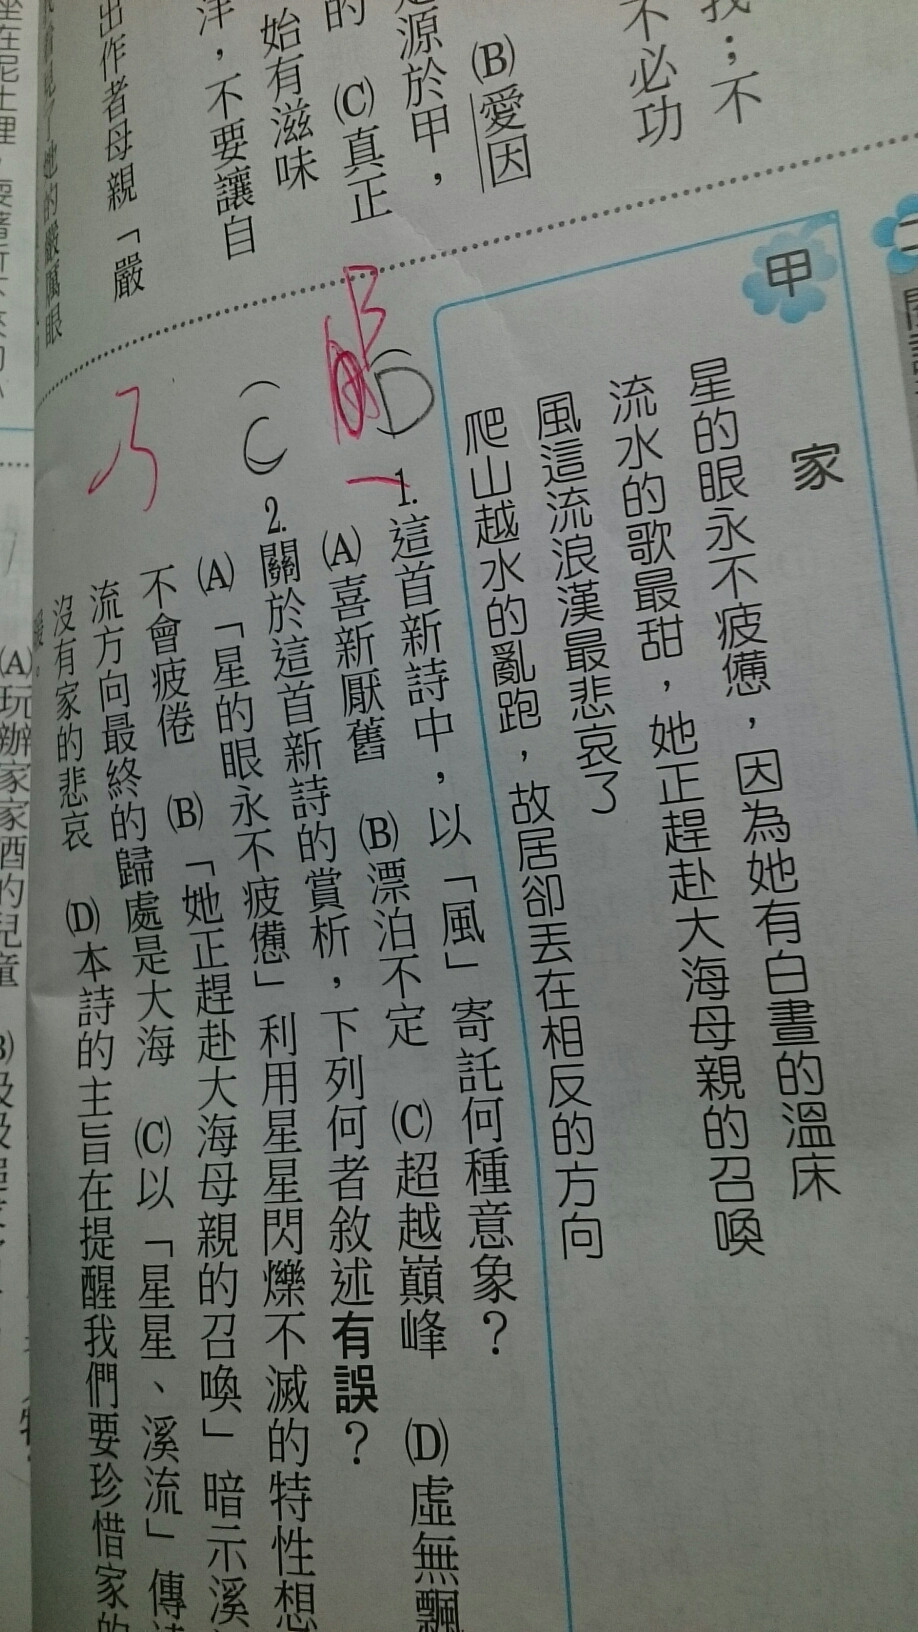 我；不
不必功
(B)愛因
源於甲，
的 (C)真正
始有滋味
洋，不要讓自
出作者母親「嚴
甲
家
星的眼永不疲憊，因為她有白晝的溫床
流水的歌最甜，她正趕赴大海母親的召喚
風這流浪漢最悲哀了
爬山越水的亂跑，故居卻丟在相反的方向
D
1.這首新詩中，以「風」寄託何種意象？
(A)喜新厭舊 (B)漂泊不定 (C)超越巔峰 (D)虛無飄
C
2.關於這首新詩的賞析，下列何者敘述有誤？
(A)「星的眼永不疲憊」利用星星閃爍不滅的特性想
不會疲倦 (B)「她正趕赴大海母親的召喚」暗示溪
流方向最終的歸處是大海 (C)以「星星、溪流」傳
沒有家的悲哀 (D)本詩的主旨在提醒我們要珍惜家的
(A)玩辦家家酒的兒童